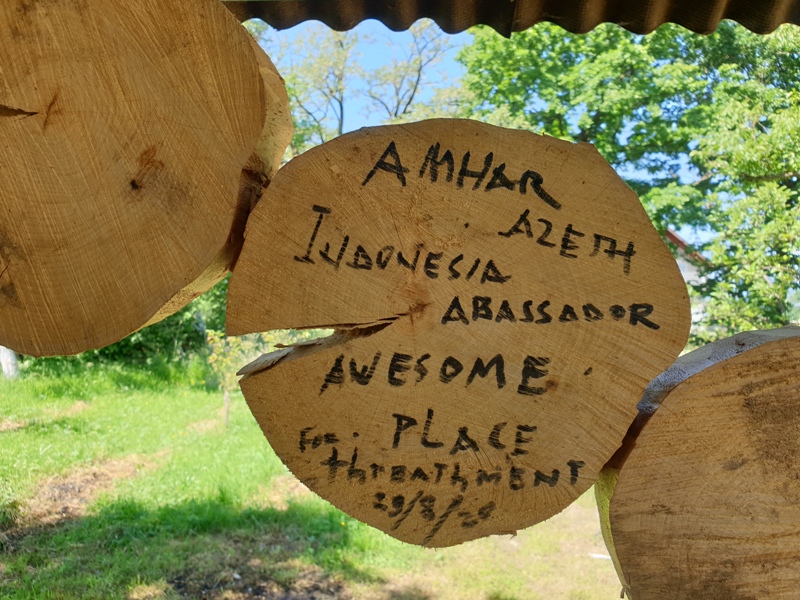 AMHAR
AZETH
INDONESIA
ABASSADOR
AWESOME
PLACE
For
thrEAthMENT